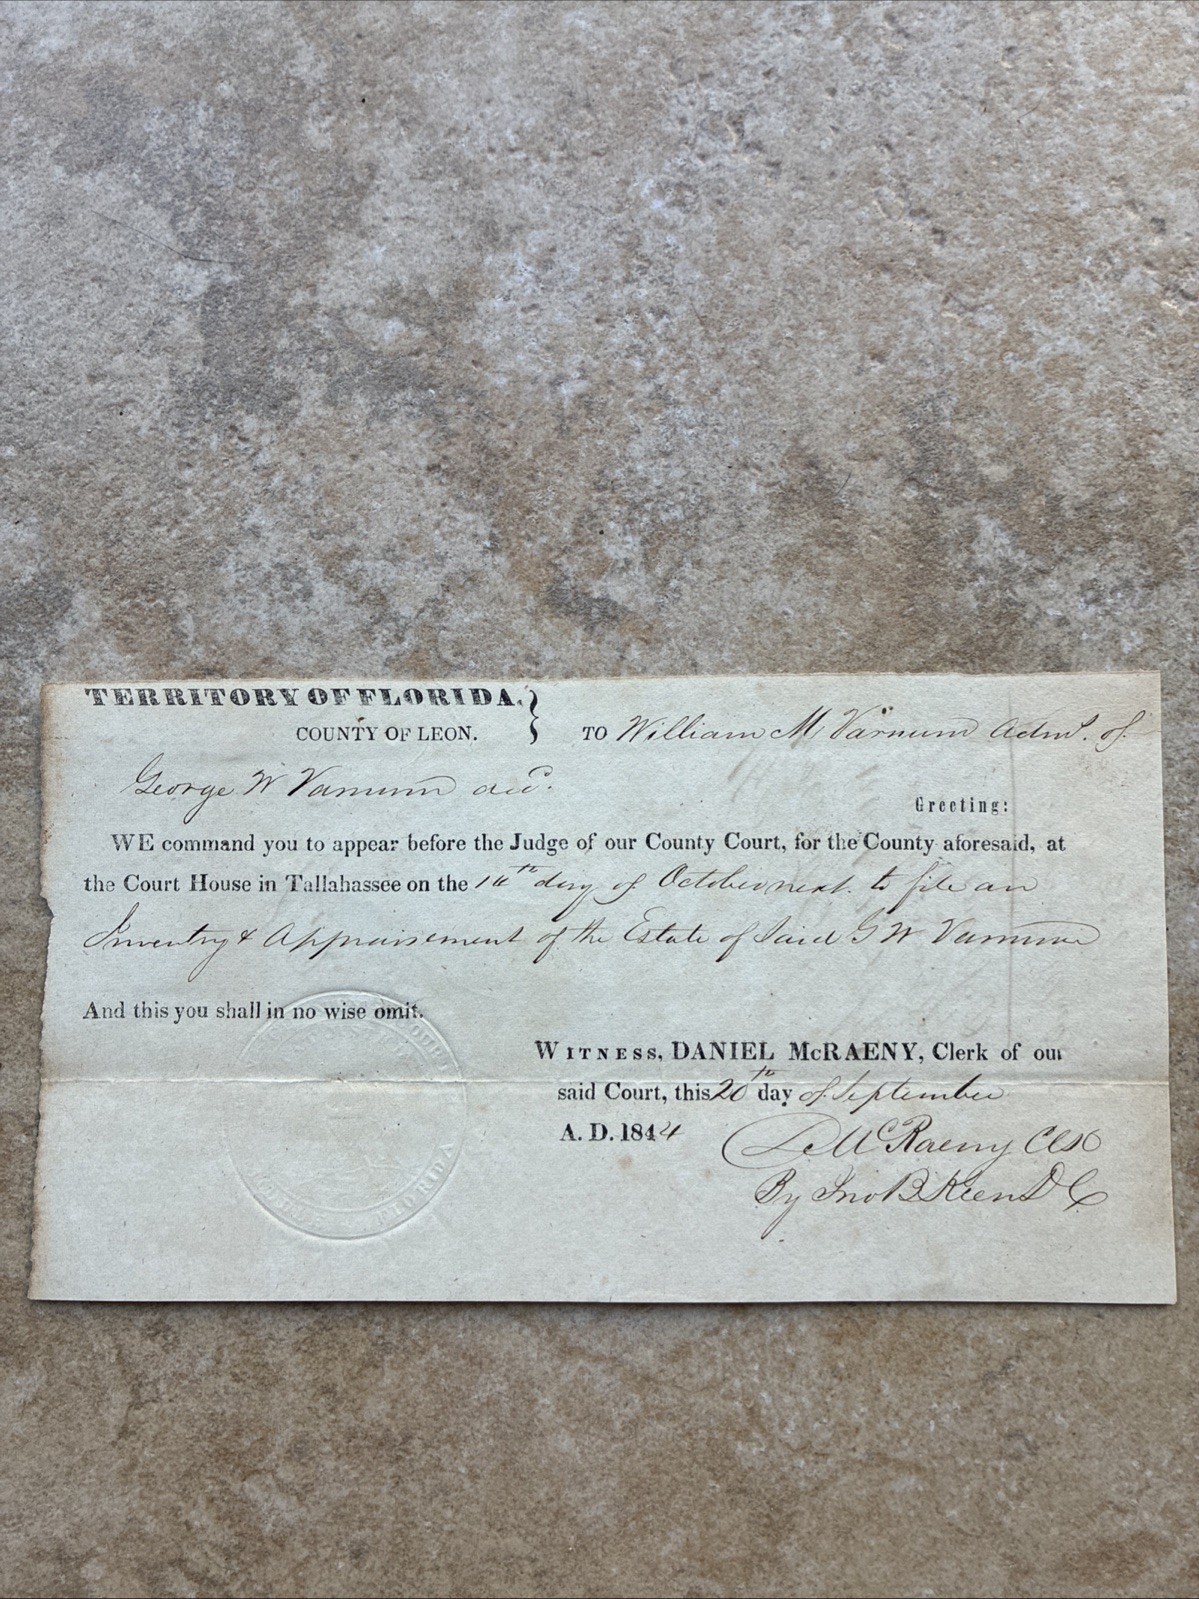 TERRITORY OF FLORIDA,
COUNTY OF LEON.
TO William M. Varnum Admr. of
George W Varnum decd.
Greeting:
WE command you to appear before the Judge of our County Court, for the County aforesaid, at
the Court House in Tallahassee on the day of October next. to file an
Inventory & Appraisement of the Estate of said G W Varnum
And this you shall in no wise omit.
WITNESS, DANIEL McRAENY, Clerk of our
said Court, this 20th day of September
A. D. 1844
D McRaeny Clk
By Jno B Keen D C
FLORIDA